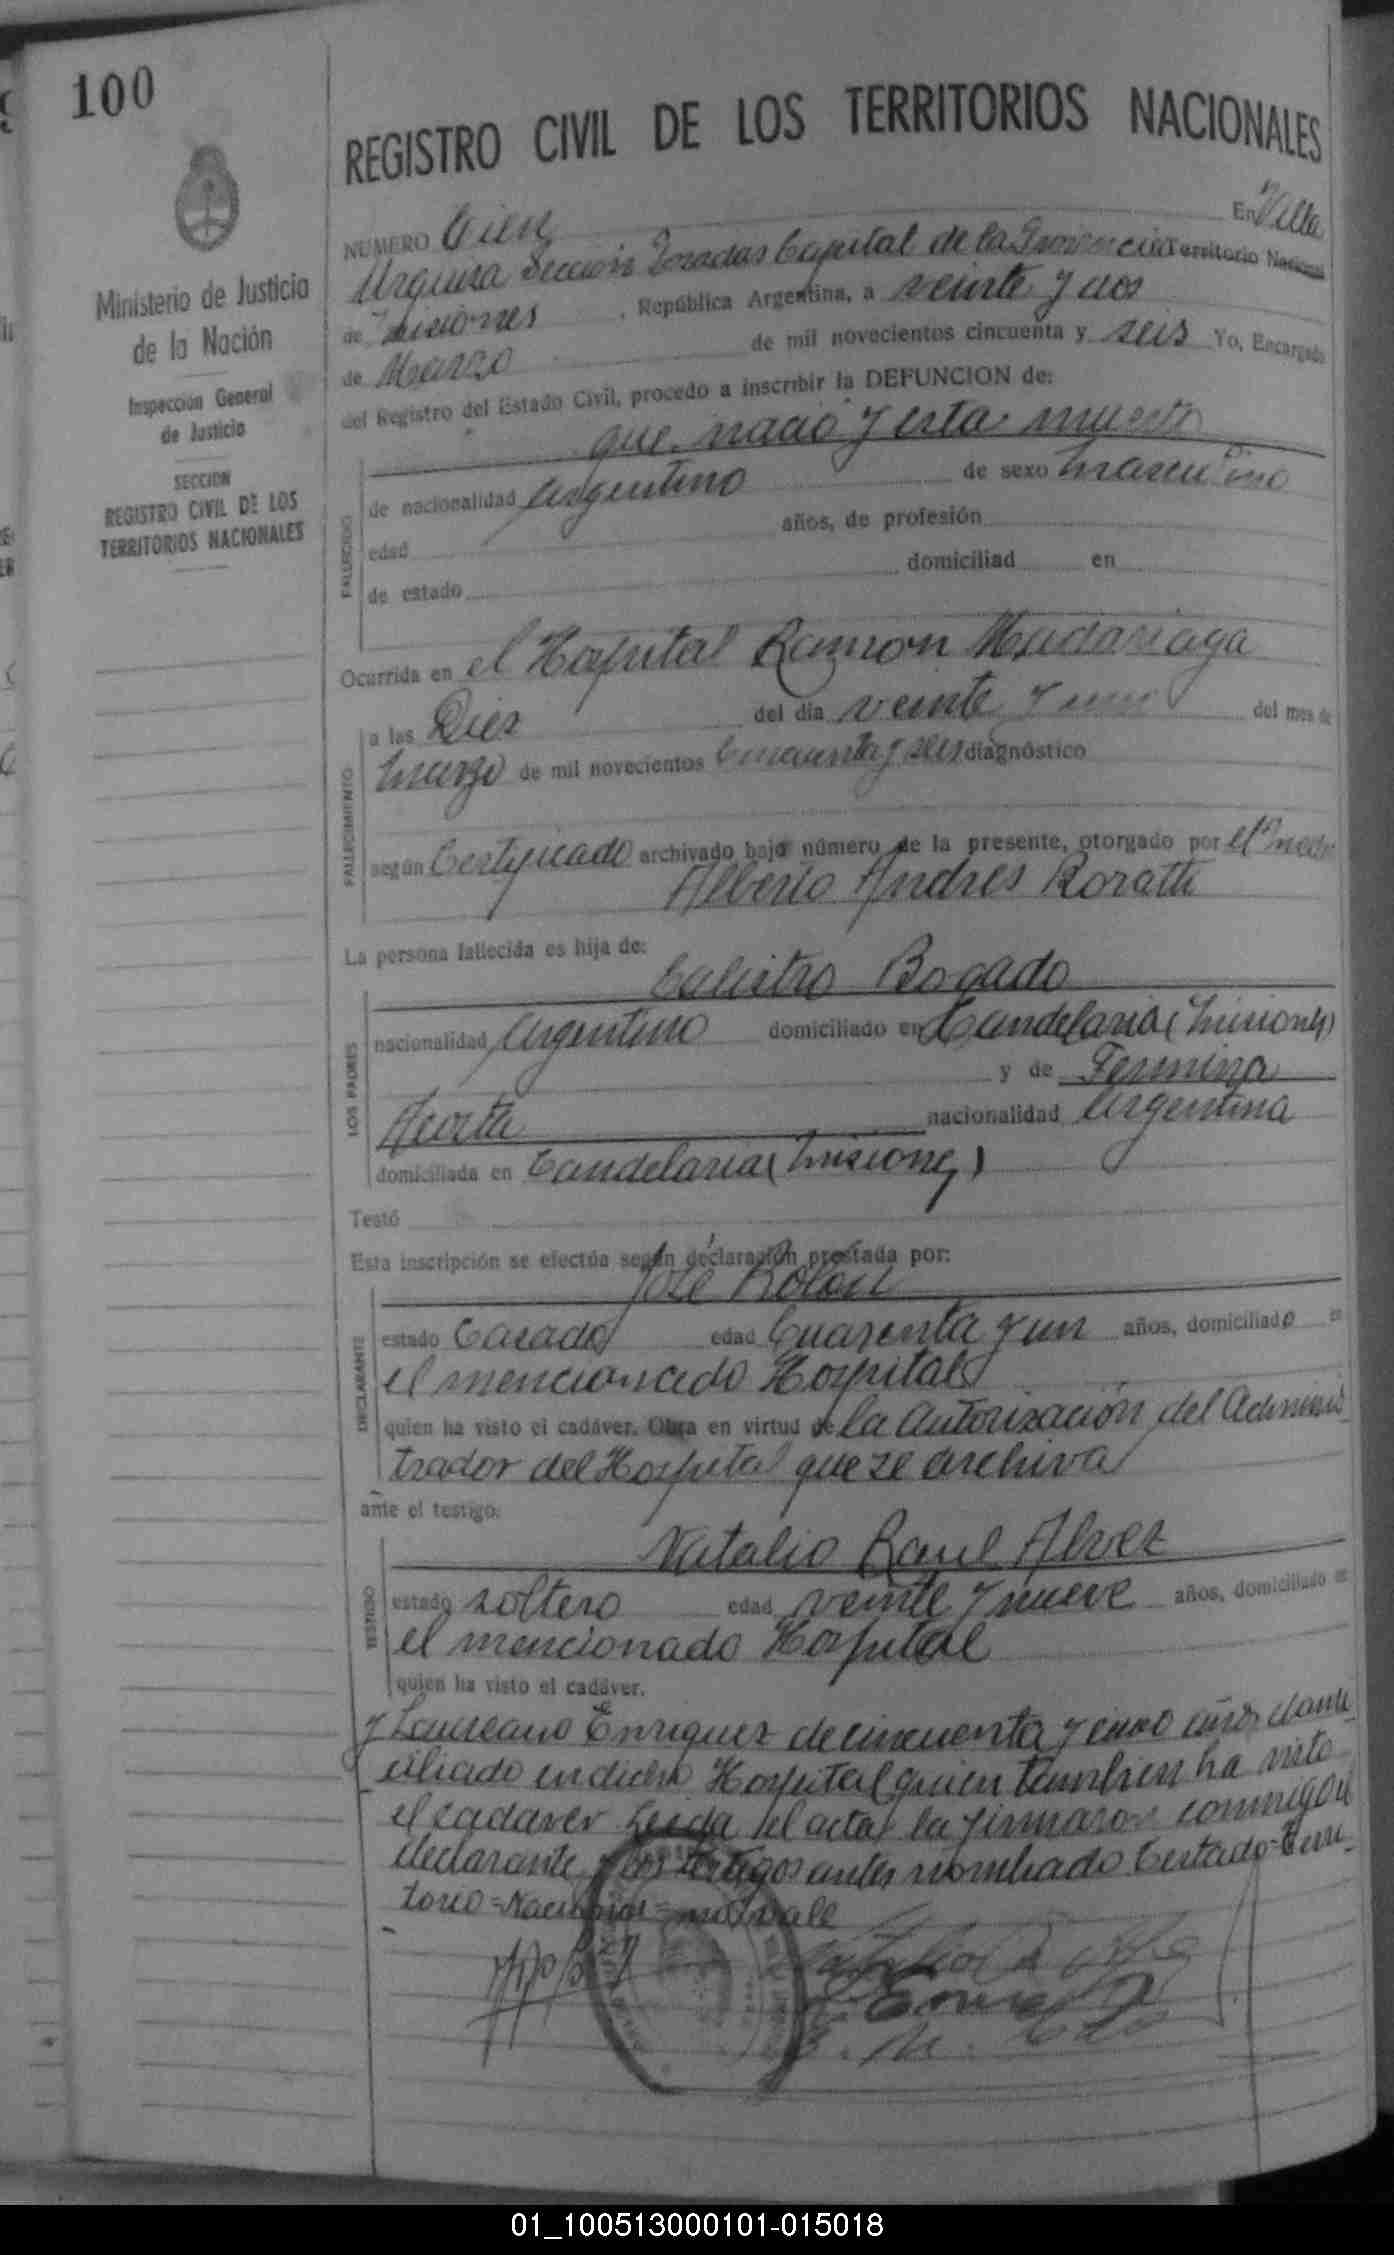 100
REGISTRO CIVIL DE LOS TERRITORIOS NACIONALES
Ministerio de Justicia
de la Nación
Inspección General
de Justicia
SECCION
REGISTRO CIVIL DE LOS
TERRITORIOS NACIONALES
NUMERO Cien En Villa
Urquiza Sección Posadas Capital de la Provincia Territorio Nacional
de Misiones, República Argentina, a veinte y dos
de Marzo de mil novecientos cincuenta y seis Yo, Encargado
del Registro del Estado Civil, procedo a inscribir la DEFUNCION de:
que nació y esta muerto
FALLECIDO
de nacionalidad argentino de sexo masculino
edad años, de profesión
de estado domiciliad en
Ocurrida en el Hospital Ramon Madariaga
FALLECIMIENTO
a las Diez del día veinte y uno del mes de
marzo de mil novecientos cincuenta y seis diagnóstico
según Certificado archivado bajo número de la presente, otorgado por el
Alberto Andres Roratti
La persona fallecida es hija de:
Calistro Bogado
LOS PADRES
nacionalidad argentino domiciliado en Candelaria (Misiones)
y de Fermina
Acosta nacionalidad argentina
domiciliada en Candelaria (Misiones)
Testó
Esta inscripción se efectúa según declaración prestada por:
José Rolon
DECLARANTE
estado Casado edad Cuarenta y un años, domiciliado en
el mencionado Hospital
quien ha visto el cadáver. Obra en virtud de la autorización del Adminis
trador del Hospital que se archiva
ante el testigo:
Natalio Raul Alvez
TESTIGO
estado soltero edad veinte y nueve años, domiciliado en
el mencionado Hospital
quien ha visto el cadáver.
y Laureano Enriquez de cincuenta y años domi
ciliado en dicho Hospital quien tambien ha visto
el cadaver Leida el acta la firmaron conmigo el
declarante y los testigos antes nombrado Testado=Terri
torio=Nacional=no vale
01_100513000101-015018